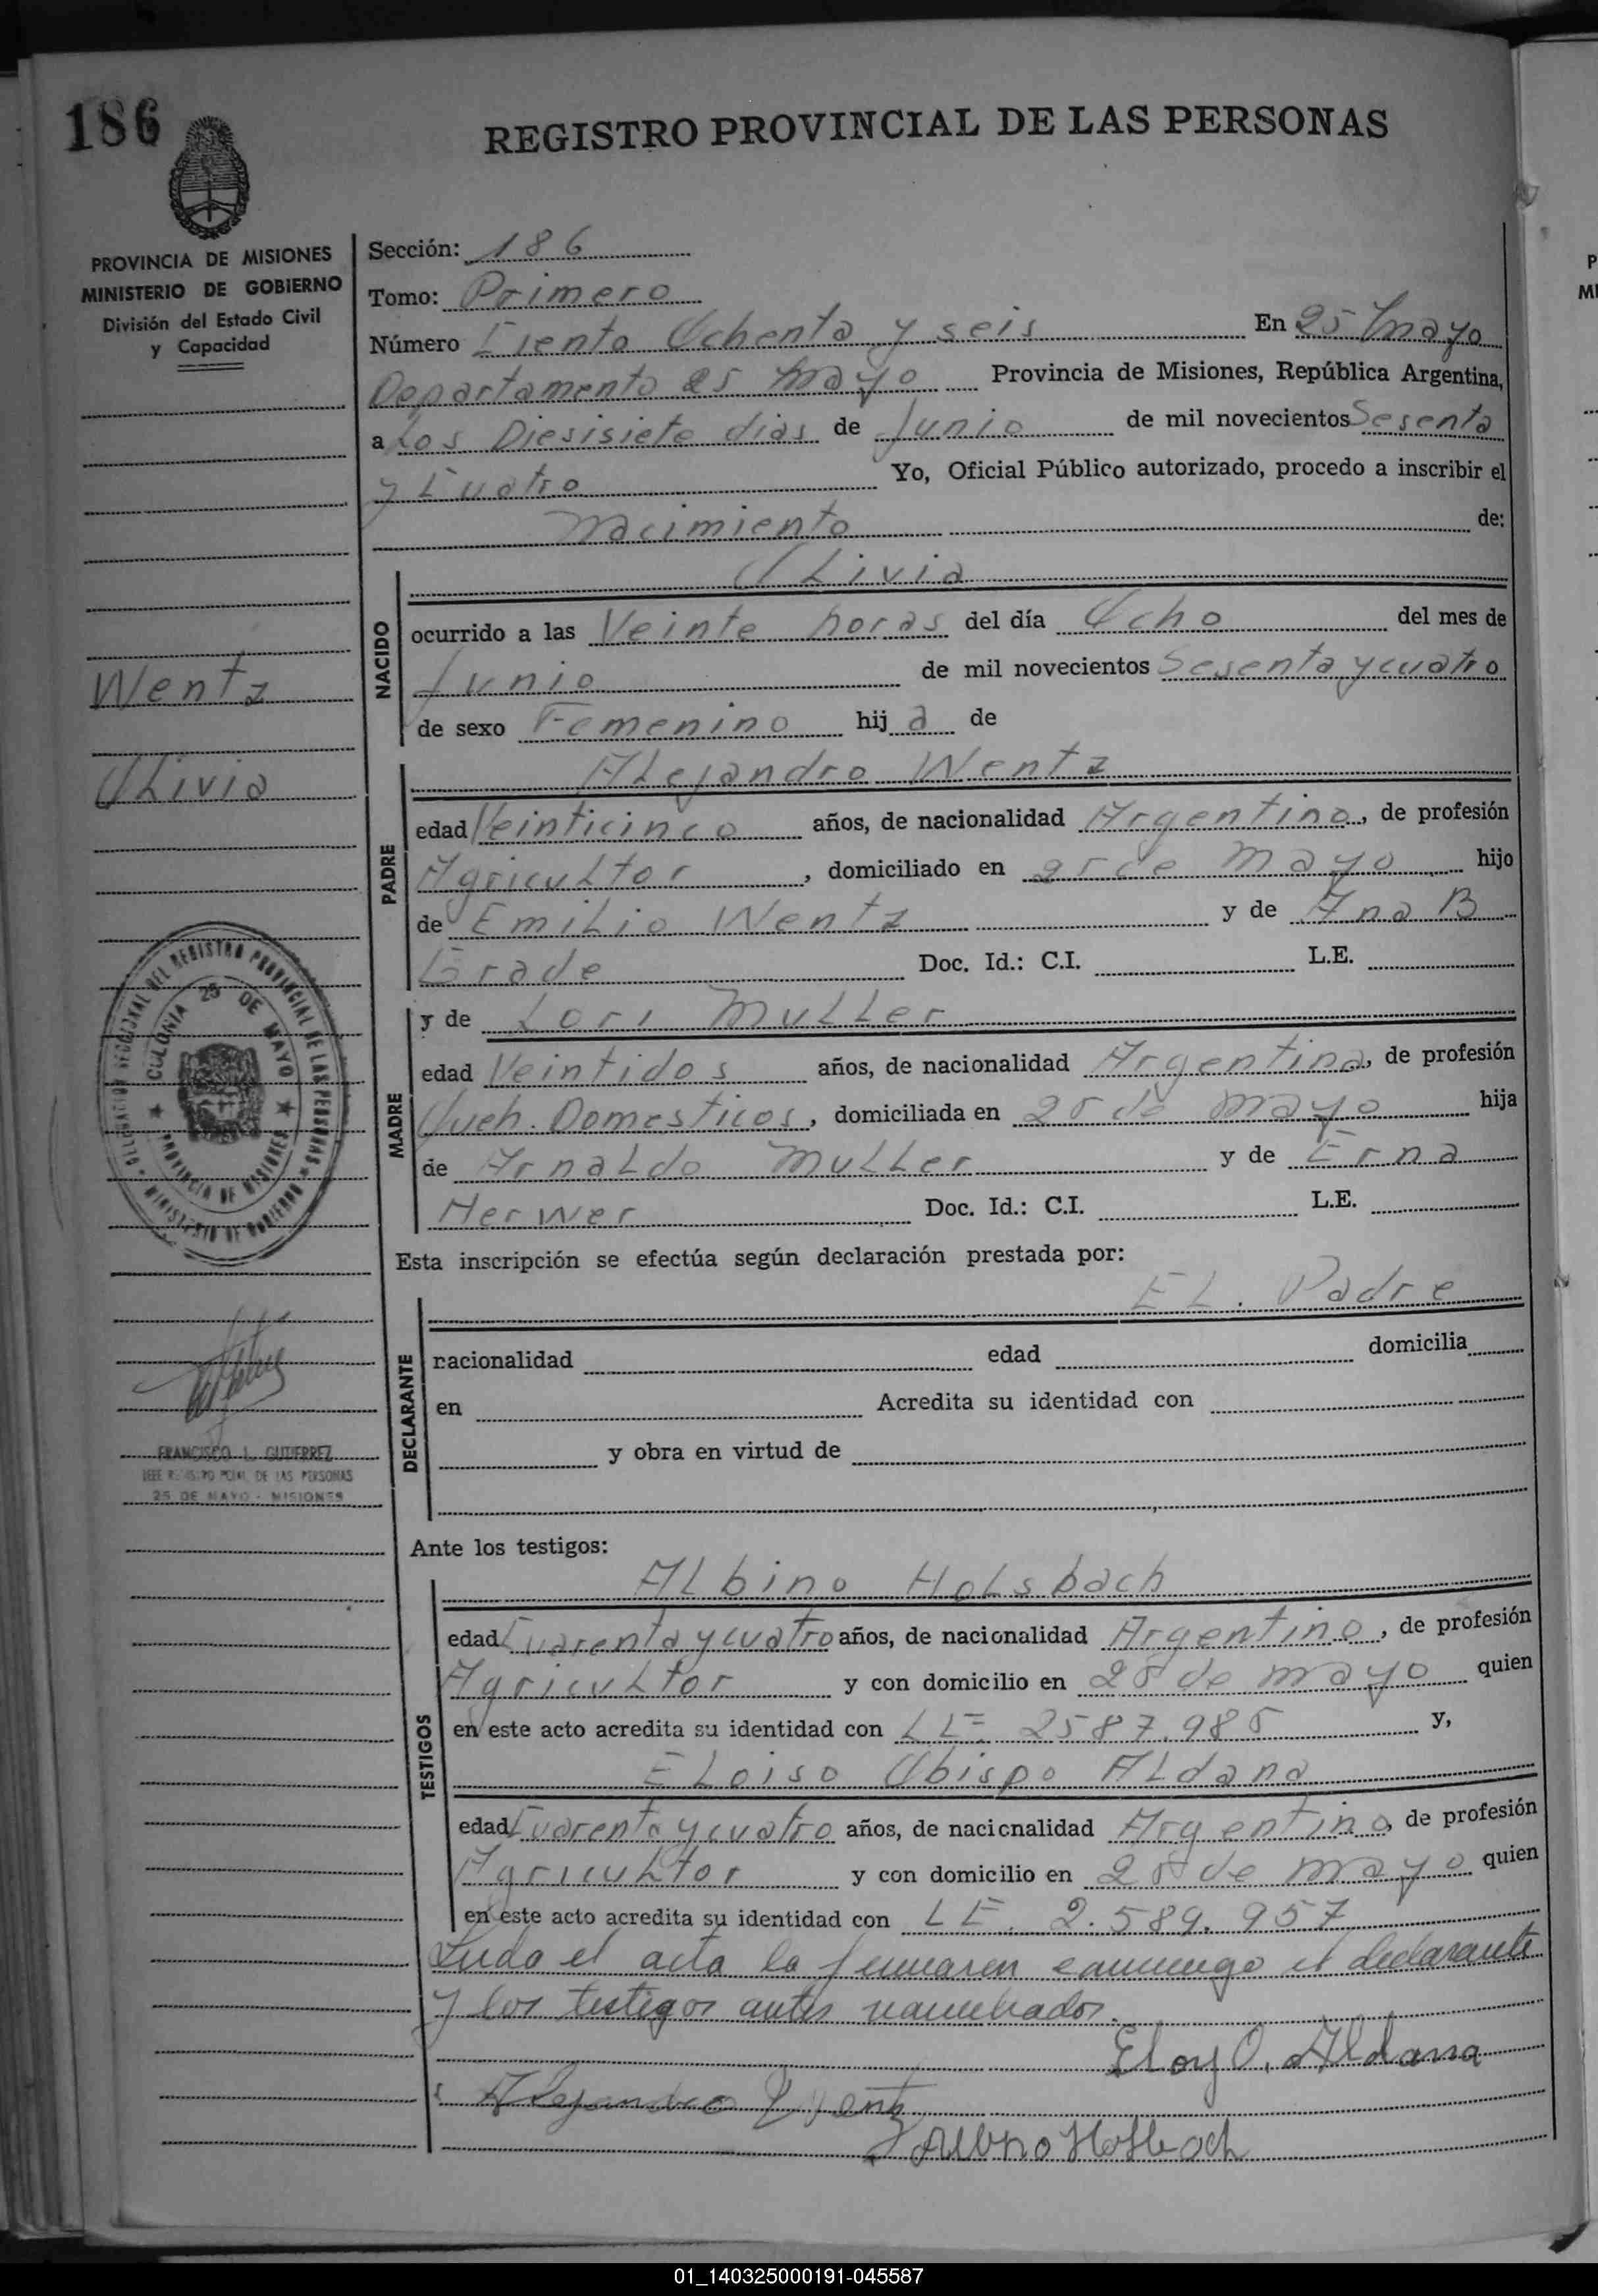 186
REGISTRO PROVINCIAL DE LAS PERSONAS
PROVINCIA DE MISIONES
MINISTERIO DE GOBIERNO
División del Estado Civil
y Capacidad
Wentz
OLivia
COLONIA 25 DE MAYO
PROVINCIA DE MISIONES
MINISTERIO DE GOBIERNO
FRANCISCO L. GUTIERREZ
JEFE REGISTRO PCIAL DE LAS PERSONAS
25 DE MAYO - MISIONES
Sección: 186
Tomo: Primero
Número Ciento Ochenta y seis En 25 Mayo
Departamento 25 Mayo Provincia de Misiones, República Argentina,
a Los Diesisiete dias de Junio de mil novecientos Sesenta
y Cuatro Yo, Oficial Público autorizado, procedo a inscribir el
Nacimiento de:
NACIDO
OLivia
ocurrido a las Veinte horas del día Ocho del mes de
Junio de mil novecientos Sesenta y cuatro
de sexo Femenino hij a de
PADRE
ALejandro Wentz
edad Veinticinco años, de nacionalidad Argentino, de profesión
AgricuLtor, domiciliado en 25 de Mayo hijo
de EmiLio Wentz y de Ana B
Grade Doc. Id.: C.I. L.E.
MADRE
y de Lori MuLLer
edad Veintidos años, de nacionalidad Argentina, de profesión
Queh. Domesticos, domiciliada en 25 de Mayo hija
de ArnaLdo MuLLer y de Erna
Herwer Doc. Id.: C.I. L.E.
Esta inscripción se efectúa según declaración prestada por:
DECLARANTE
EL. Padre
nacionalidad edad domicilia
en Acredita su identidad con
y obra en virtud de
Ante los testigos:
TESTIGOS
ALbino HoLsbach
edad Cuarenta y cuatro años, de nacionalidad Argentino, de profesión
AgricuLtor y con domicilio en 25 de Mayo quien
en este acto acredita su identidad con LE. 2587.985 y,
ELoiso Obispo ALdana
edad Cuarenta y cuatro años, de nacionalidad Argentino, de profesión
AgricuLtor y con domicilio en 25 de Mayo quien
en este acto acredita su identidad con LE. 2.589.957
Leida el acta la firmaron conmigo el declarante
y los testigos antes nombrados.
Eloy O. Aldana
Alejandro Wentz
Albino Holsbach
01_140325000191-045587